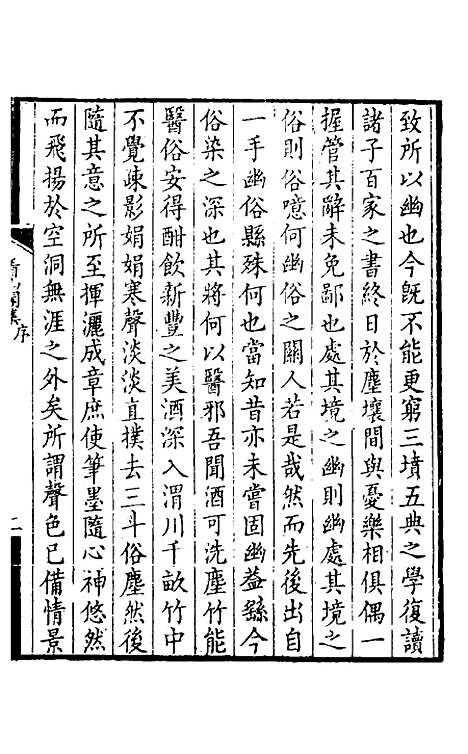 致所以幽也今旣不能更窮三墳五典之學復讀
諸子百家之書終日於塵壤間與憂樂相俱偶一
握管其辭未免鄙也處其境之幽則幽處其境之
俗則俗噫何幽俗之關人若是哉然而先後出自
一手幽俗縣殊何也當知昔亦未嘗固幽葢繇今
俗染之深也其將何以醫邪吾聞酒可洗塵竹能
醫俗安得酣飲新豐之美酒深入渭川千畝竹中
不覺疎影娟娟寒聲淡淡直撲去三斗俗塵然後
隨其意之所至揮灑成章庶使筆墨隨心神悠然
而飛揚於空洞無涯之外矣所謂聲色已備情景
集序
二